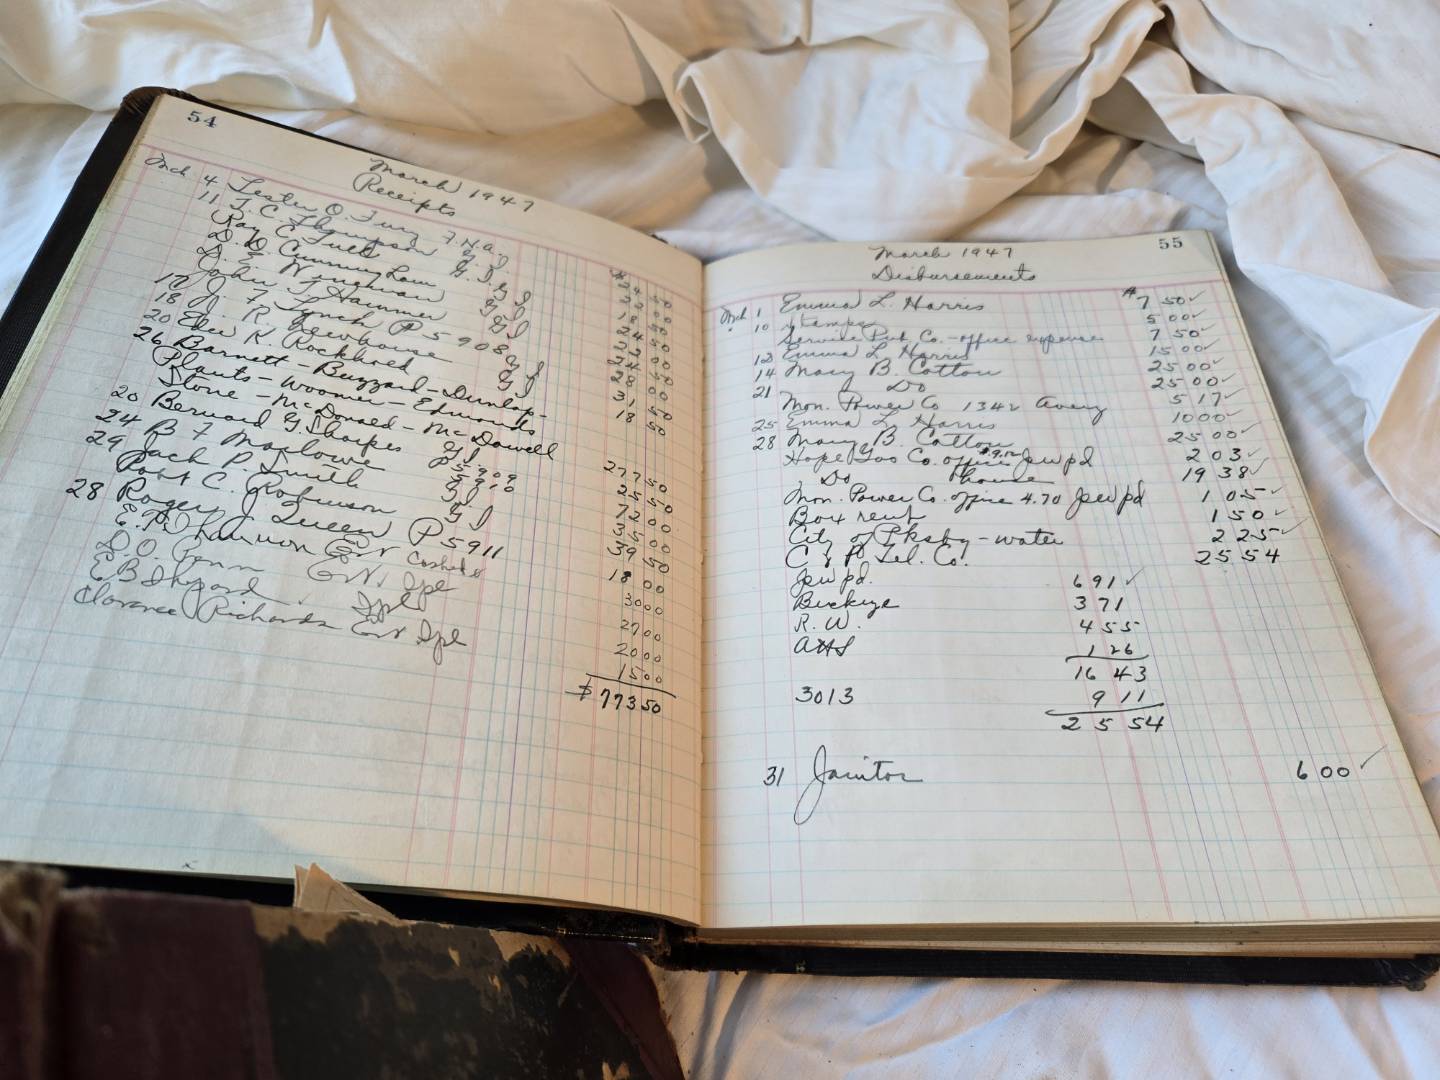 54
March 1947
Receipts
Mch 4 Lester O. Fury F.H.A. 24 50
11 T. C. Thompson G.I. 22 00
Ray C. Tuell G.I. 18 50
D. D. Cunningham G I 24 50
D. E. Wineman G I 22 00
John F Hammer G I 24 50
17 J. F Lynch P 5908 28 00
18 H. R. Newhouse G I 31 50
20 K. Rockhold G I 18 50
26 Barnett - Buzzard - Dunlap -
Plants - Woomer - Edmonds
Stone - McDonald - McDowell 27 7 50
20 Bernard G. Sharpes G I 25 50
24 B F Marlowe P 5909 5910 72 00
29 Jack P. Smith G I 35 00
Robt C. Robinson G I 39 50
28 Roger J Queen P 5911 18 00
E. P. Shannon Ext 30 00
D. O. Penn Ext. Spl 27 00
E B Shepard Spl 20 00
Clarence Richards Ext Spl 15 00
$ 773 50
55
March 1947
Disbursements
Mch 1 Emma L. Harris $ 7 50 ✓
10 Stamps 5 00 ✓
Service Pub Co. - office expense 7 50 ✓
12 Emma L Harris 15 00 ✓
14 Mary B. Cotton 25 00 ✓
21 Do 25 00 ✓
Mon. Power Co 1342 Avery 5 17 ✓
25 Emma L. Harris 10 00 ✓
28 Mary B. Cotton 25 00 ✓
Hope Gas Co. office Jew pd 2 03 ✓
Do house 19 38 ✓
Mon. Power Co. office 4.70 Jew pd 1 05 ✓
Box rent 1 50 ✓
City of Pksbg - water 2 25 ✓
C & P Tel. Co. 25 54
Jew pd. 6 91 ✓
Buckeye 3 71
R. W. 4 55
AHS 1 26
16 43
3013 9 11
2 5 54
31 Janitor 6 00 ✓